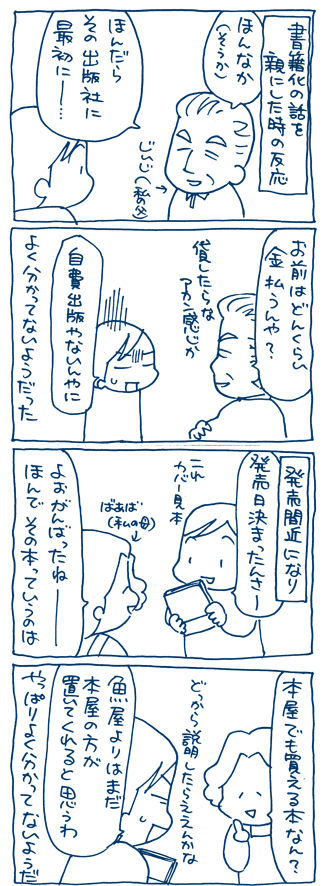 書籍化の話を
親にした時の反応
ほんなか
(そうか)
じいじ(私の父)
ほんだら
その出版社に
最初に━…
お前はどんくらい
金払うんや?
貸したらな
アカン感じか
自費出版やないんやに
よく分かってないようだった
発売間近になり
発売日決まったんさー
これ
カバー見本
ばあば
(私の母)
よおがんばったねー
ほんでその本っていうのは
本屋でも買える本なん?
どっから説明したらええんかな
魚屋よりはまだ
本屋の方が
置いてくれると思うわ
やっぱりよく分かってないようだ